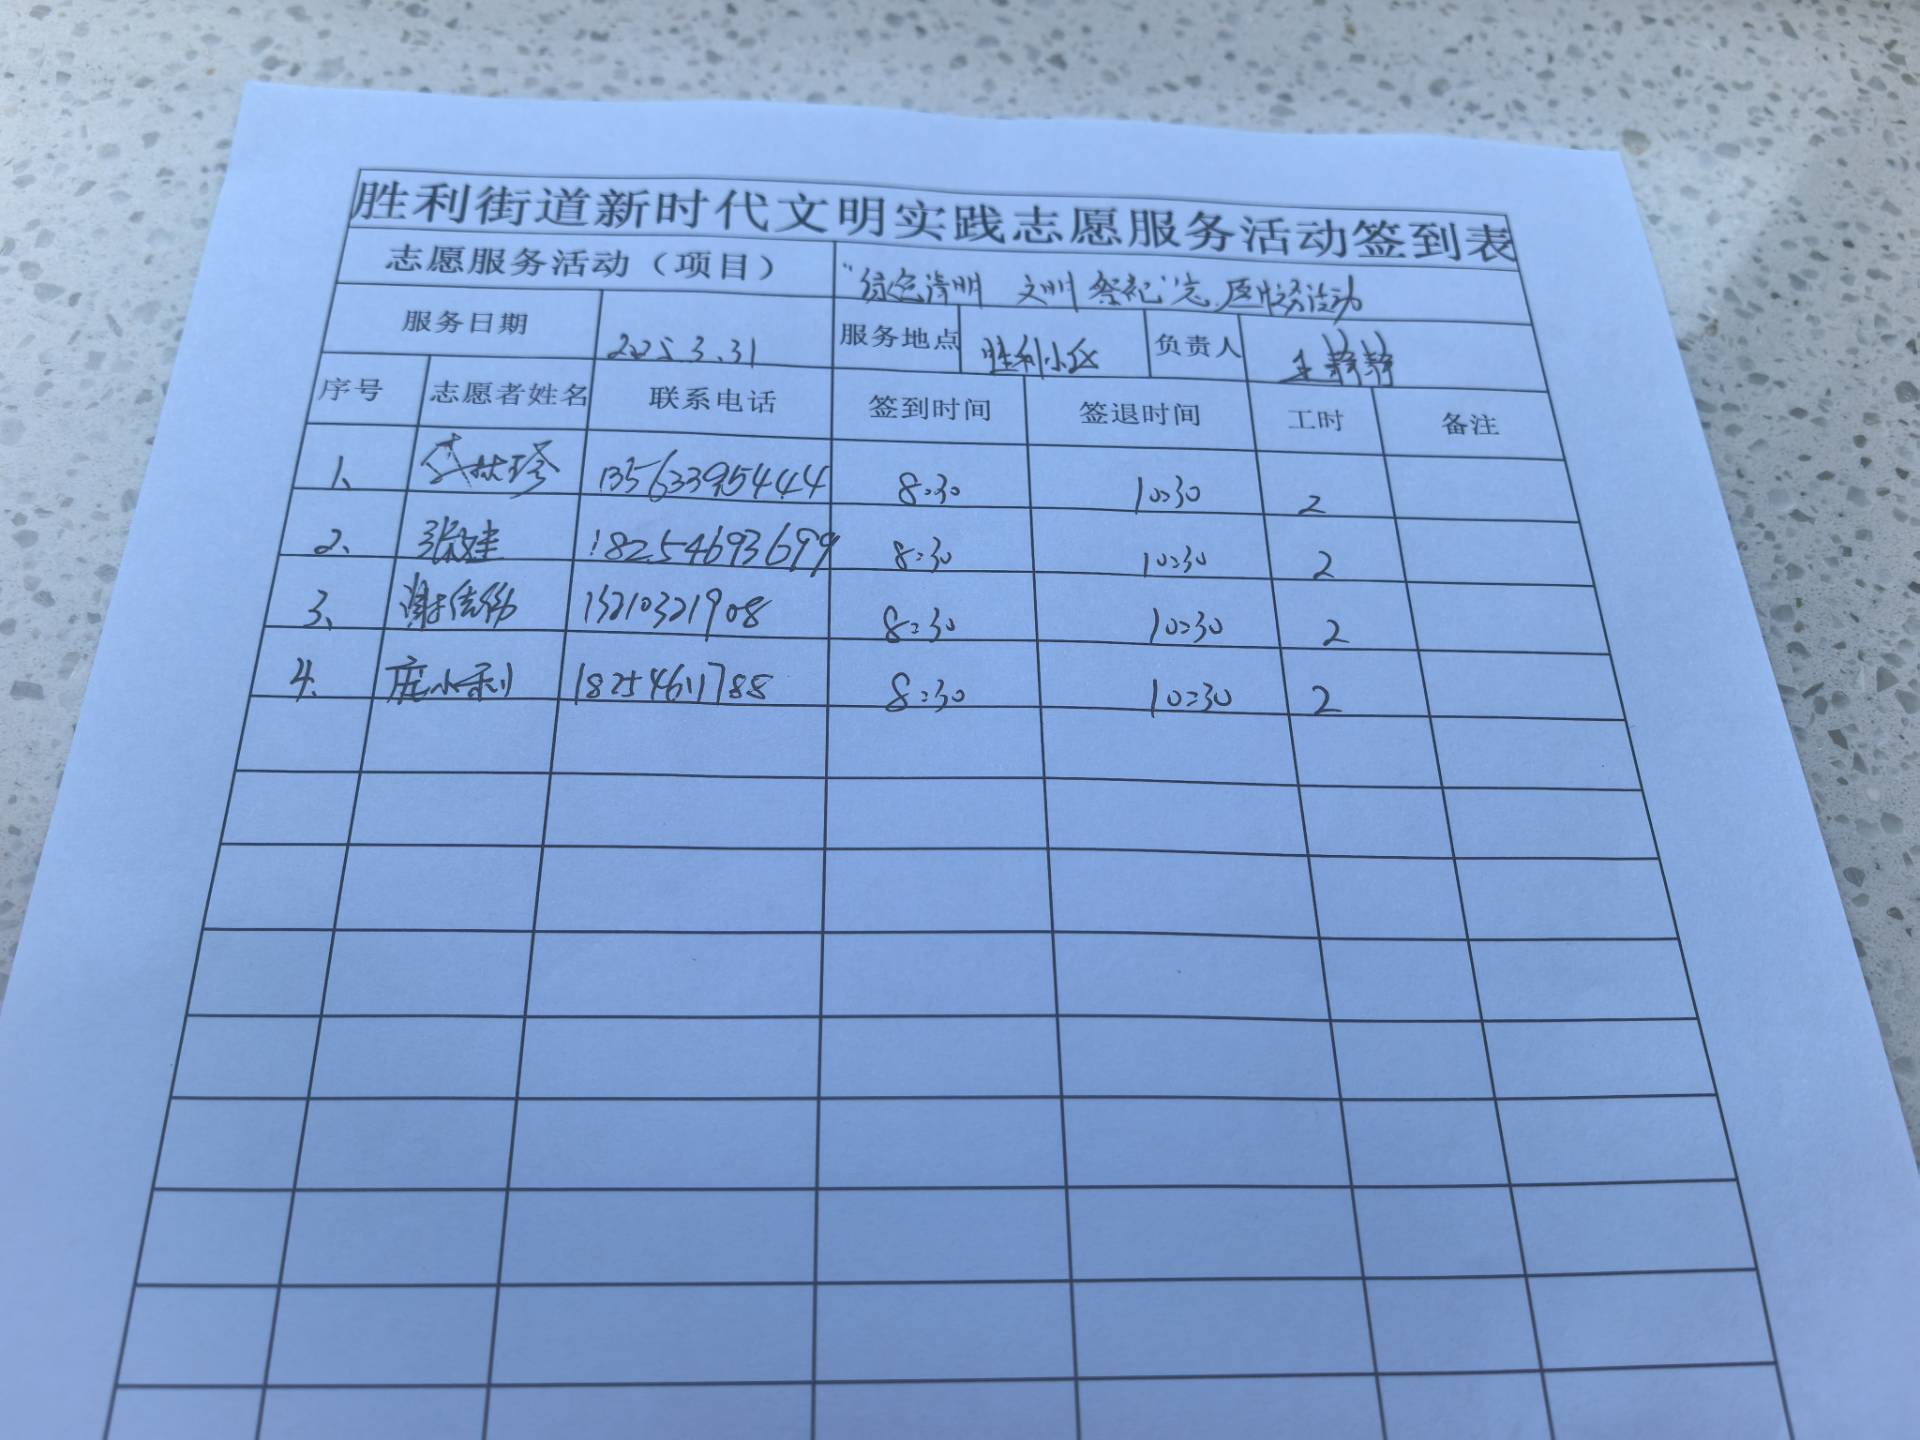 胜利街道新时代文明实践志愿服务活动签到表
志愿服务活动（项目） “绿色清明 文明祭祀”志愿服务活动
服务日期 2025.3.31 服务地点 胜利小区 负责人 王静静
序号 志愿者姓名 联系电话 签到时间 签退时间 工时 备注
1、 13563395444 8:30 10:30 2
2、 18254693699 8:30 10:30 2
3、 8:30 10:30 2
4. 18254611788 8:30 10:30 2